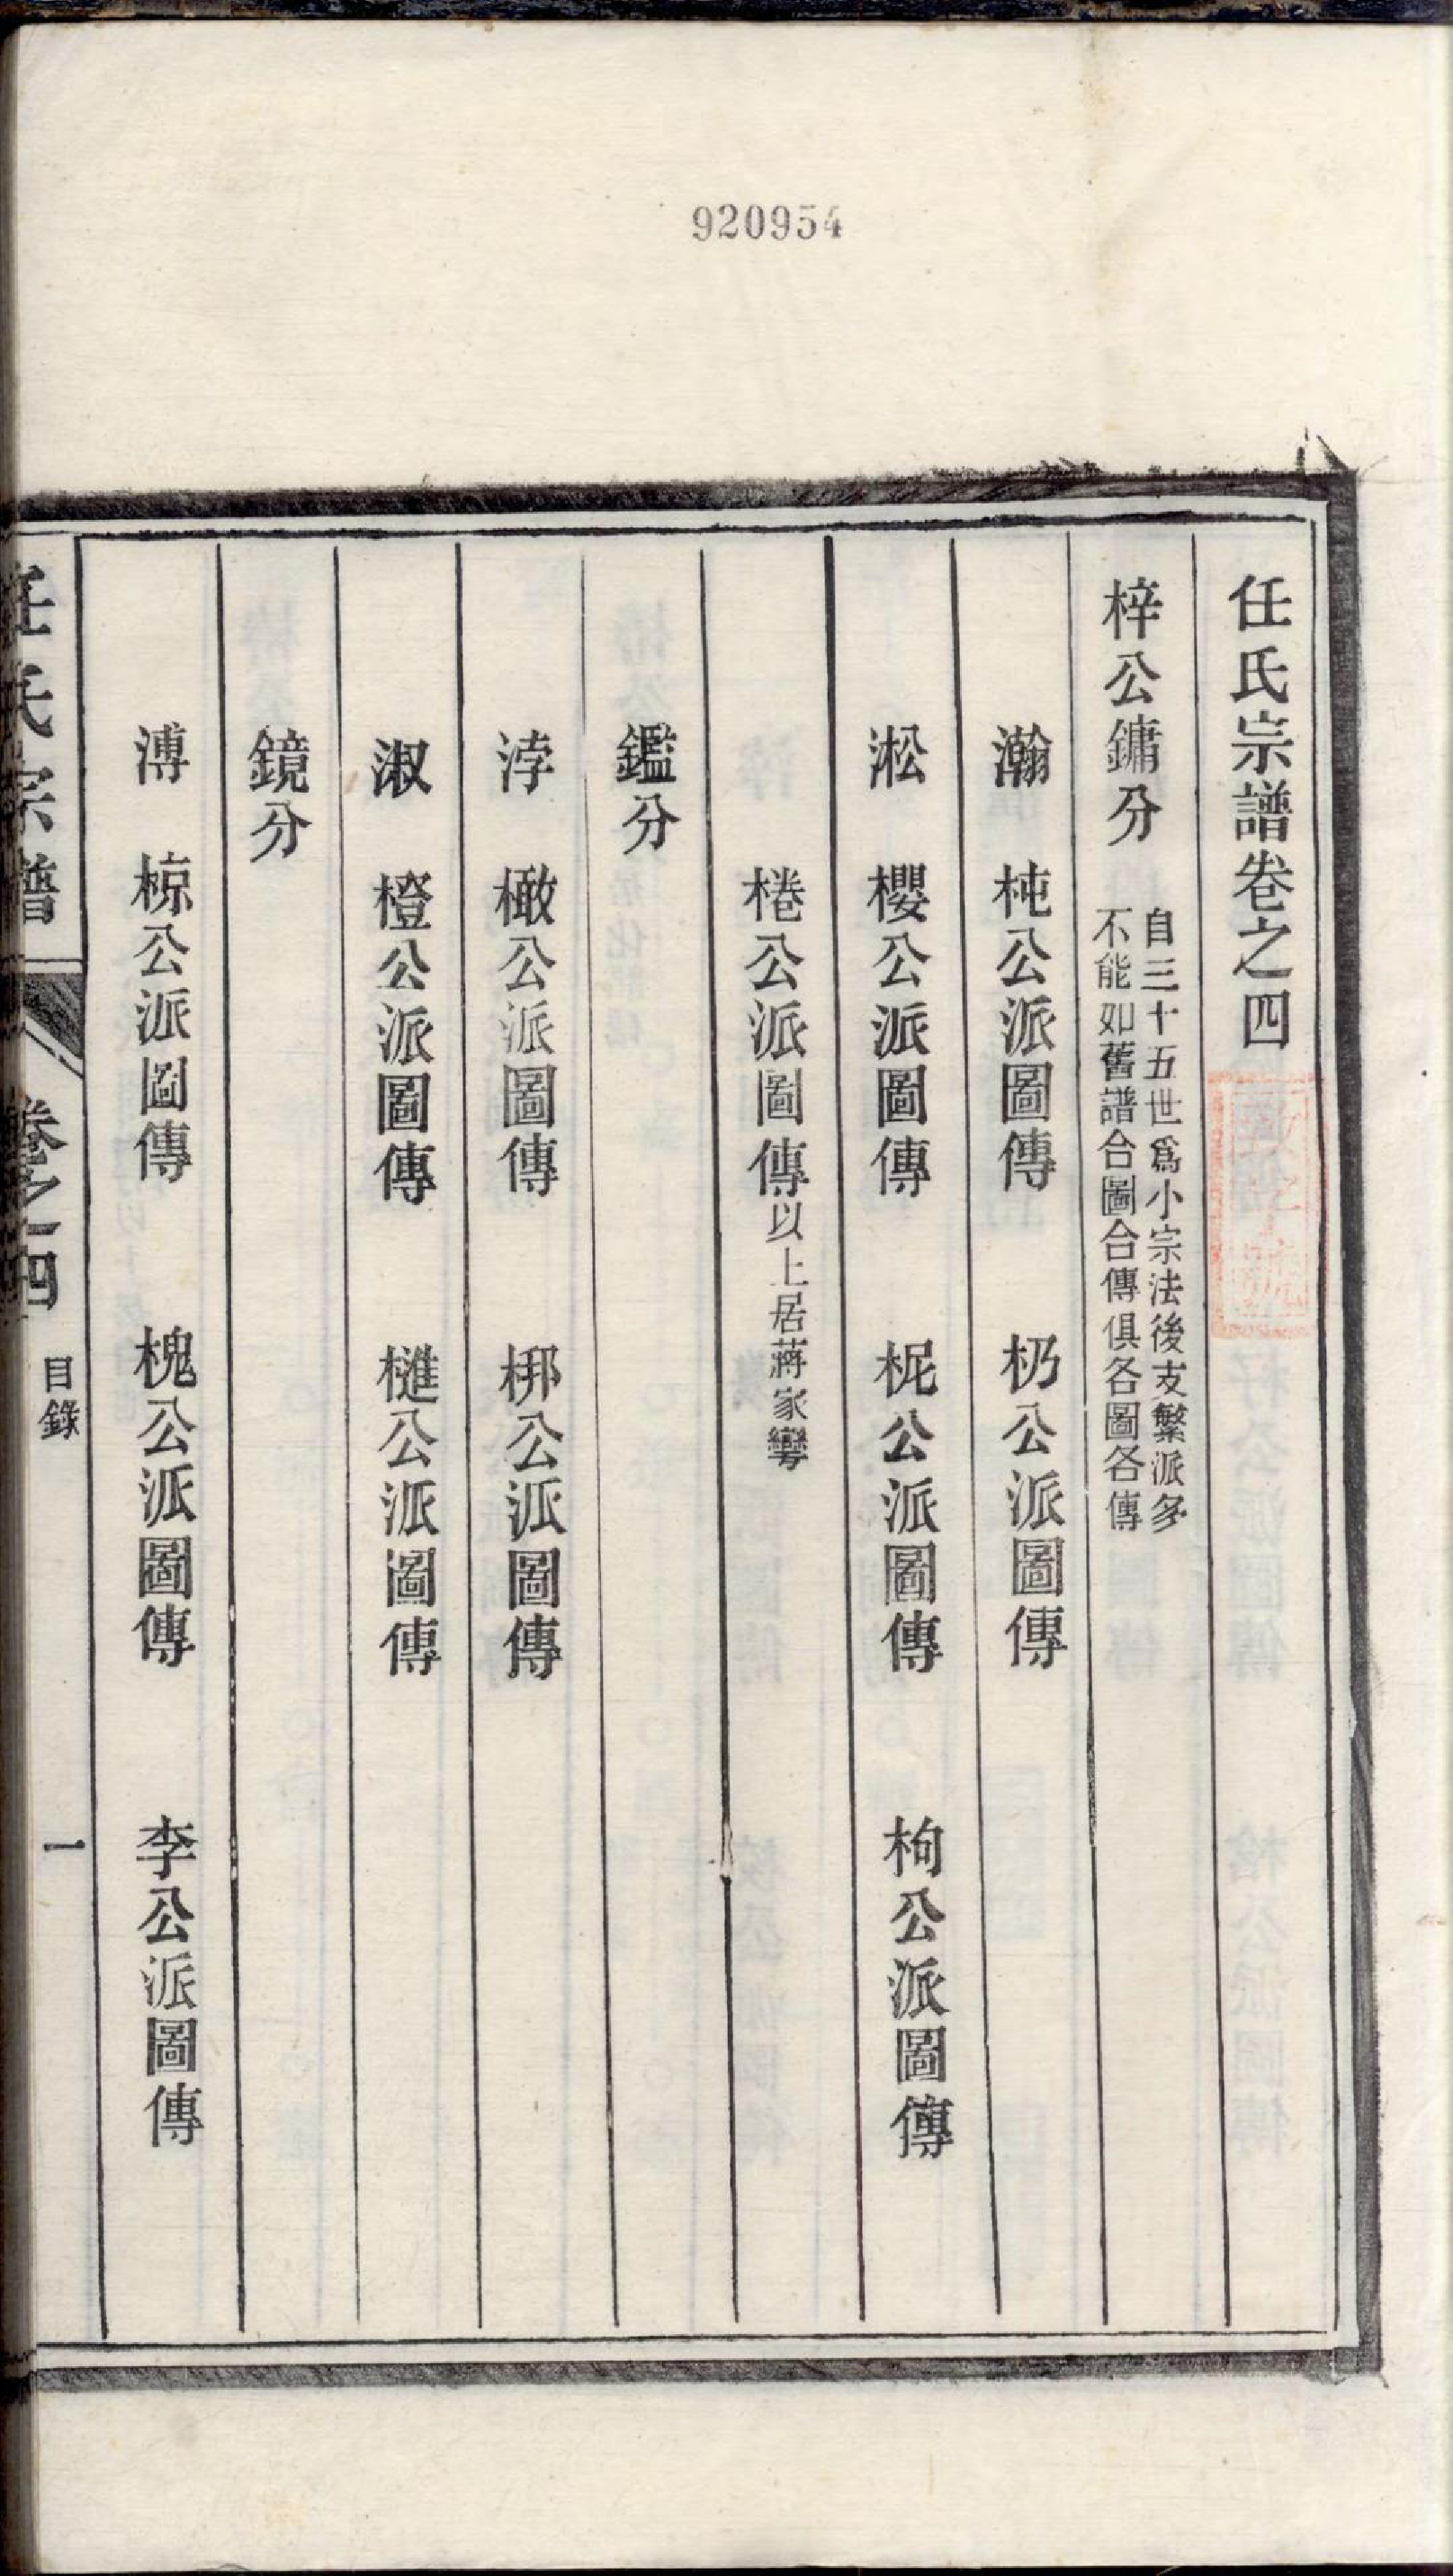 920954
任氏宗譜卷之四
梓公鏞分
自三十五世爲小宗法後支繁派多
不能如舊譜合圖合傳俱各圖各傳
瀚 杶公派圖傳 杤公派圖傳
淞 櫻公派圖傳 柅公派圖傳 枸公派圖傳
棬公派圖傳以上居蔣家彎
鑑分
浡 橄公派圖傳 梆公派圖傳
淑 橙公派圖傳 槌公派圖傳
鏡分
溥 椋公派圖傳 槐公派圖傳 李公派圖傳
任氏宗譜 卷之四 目錄 一